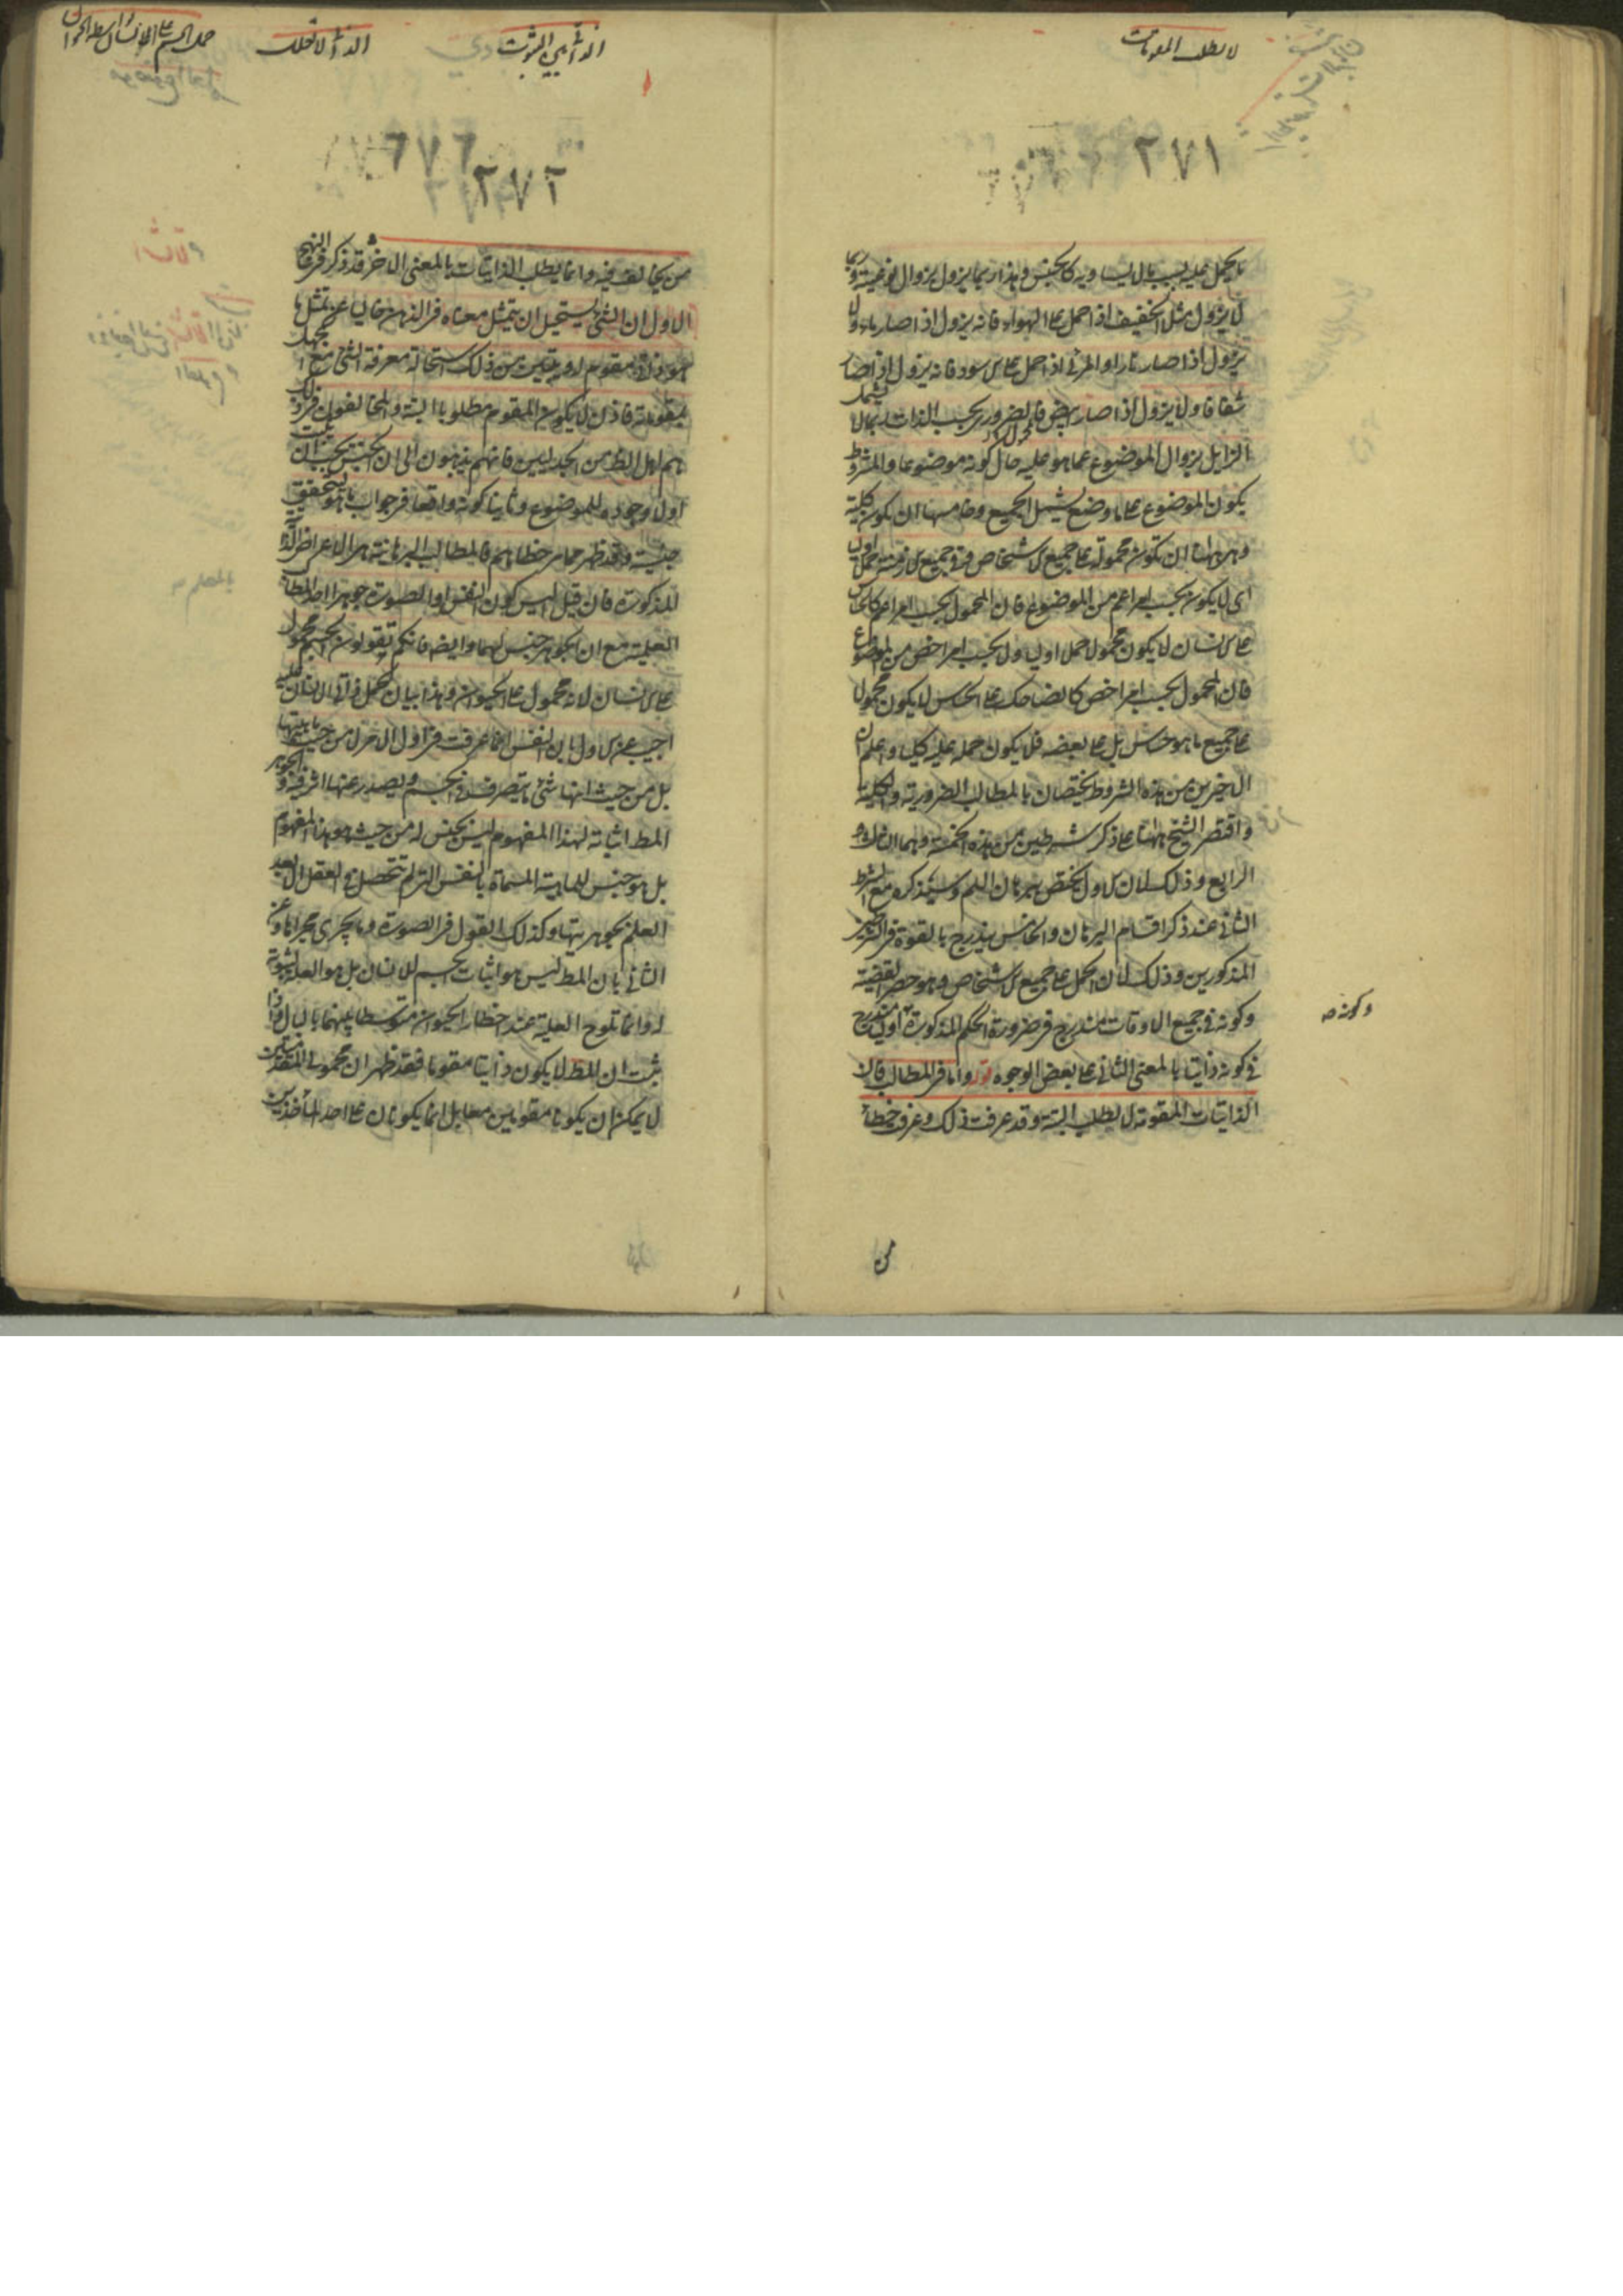 لا يطلب المقومات
٢٧١
ما يحمل عليه بسبب ما لا يساويه كالجنس وهذا ربما يزول بزوال نوعيته وربما
لا يزول مثل الخفيف اذا حمل على الهواء فانه يزول اذا صار ماء ولا
يزول اذا صار نارا او المرئى اذا حمل على الاسود فانه يزول اذا صار
شفافا ولا يزول اذا صار ابيض فالضرورى بحسب الذات ربما لا يشمل
الزايل بزوال الموضوع عما هو عليه حال كونه موضوعا والمشروط
يكون الموضوع على ما وضع يشمل الجميع وخامسها ان يكون كلية
وهى هاهنا ان تكون محمولة على جميع الاشخاص وفى جميع الازمنة حملا اوليا
اى لا يكون بحسب امر اعم من الموضوع فان المحمول بحسب امر اعم كالحساس
على الانسان لا يكون محمولا حملا اوليا ولا بحسب امر اخص من الموضوع
فان المحمول بحسب امر اخص كالضاحك على الحساس لا يكون محمولا
على جميع ما هو حساس بل على بعضه فلا يكون حمله عليه كليا واعلم ان
الاخيرين من هذه الشروط يختصان بالمطالب الضرورية والكلية
واقتصر الشيخ هاهنا على ذكر شرطين من هذه الخمسة وهما الثالث و
الرابع وذلك لان الاول يختص ببرهان اللم وسيذكره مع الشرط
الثانى عند ذكر اقسام البرهان والخامس يندرج بالقوة فى الشرطين
المذكورين وذلك لان الحمل على جميع الاشخاص وهو حصر القضية
وكونه فى جميع الاوقات مندرج فى ضرورة الحكم المذكورة اوليا مندرج
فى كونه ذاتيا بالمعنى الثانى على بعض الوجوه قوله واما فى المطالب فان
الذاتيات المقومة لا يطلب البتة وقد عرفت ذلك وعرفت خطأ
وكونه صح
من
الذاتى بين الثبوت
الذاتى لا تعلل
حمل الجسم على الانسان بواسطة الحيوان
٢٧٢
من يخالف فيه وانما يطلب الذاتيات بالمعنى الاخر قد ذكر فى النهج
الاول ان الشئ يستحيل ان يتمثل معناه فى الذهن خاليا عن تمثل ما
هو ذاتى مقوم له ويتبين من ذلك استحالة معرفة الشئ مع الجهل
بمقوماته فاذن لا يكون المقوم مطلوبا البتة والمخالفون فى ذلك
هم اهل الظاهر من الجدليين فانهم يذهبون الى ان الجنس يجب ان يثبت
اولا وجوده للموضوع وثانيا كونه واقعا فى جواب ما هو ليتحقق
جنسيته وقد ظهر مما مر خطاهم فالمطالب البرهانية هى الاعراض الذاتية
المذكورة فان قيل اليس كون النفس او الصورة جوهرا احد المطالب
العلمية مع ان الجوهر جنس لهما وايضا فانكم تقولون الجسم محمول
على الانسان لانه محمول على الحيوان وهذا بيان لحمل ذاتى الانسان عليه
اجيب عن الاول بان النفس انما عرفت فى اول الامر لا من حيث ماهيتها
بل من حيث انها شئ ما يتصرف فى الجسم ويصدر عنها اثر فيه والجوهر
المط اثباته لهذا المفهوم ليس بجنس له من حيث هو هذا المفهوم
بل هو جنس للماهية المسماة بالنفس التى لم تتحصل فى العقل الا بعد
العلم بجوهريتها وكذلك القول فى الصورة وما يجرى مجراها وعن
الثانى بان المط ليس هو اثبات الجسم للانسان بل هو العلة لثبوته
له وانما تلوح العلية عند اخطار الحيوان متوسطا بينهما بالبال واذا
ثبت ان المط لا يكون ذاتيا مقوما فقد ظهر ان محمولى المقدمتين
لا يمكن ان يكونا مقومين معا بل انما يكونان على احد المأخذين